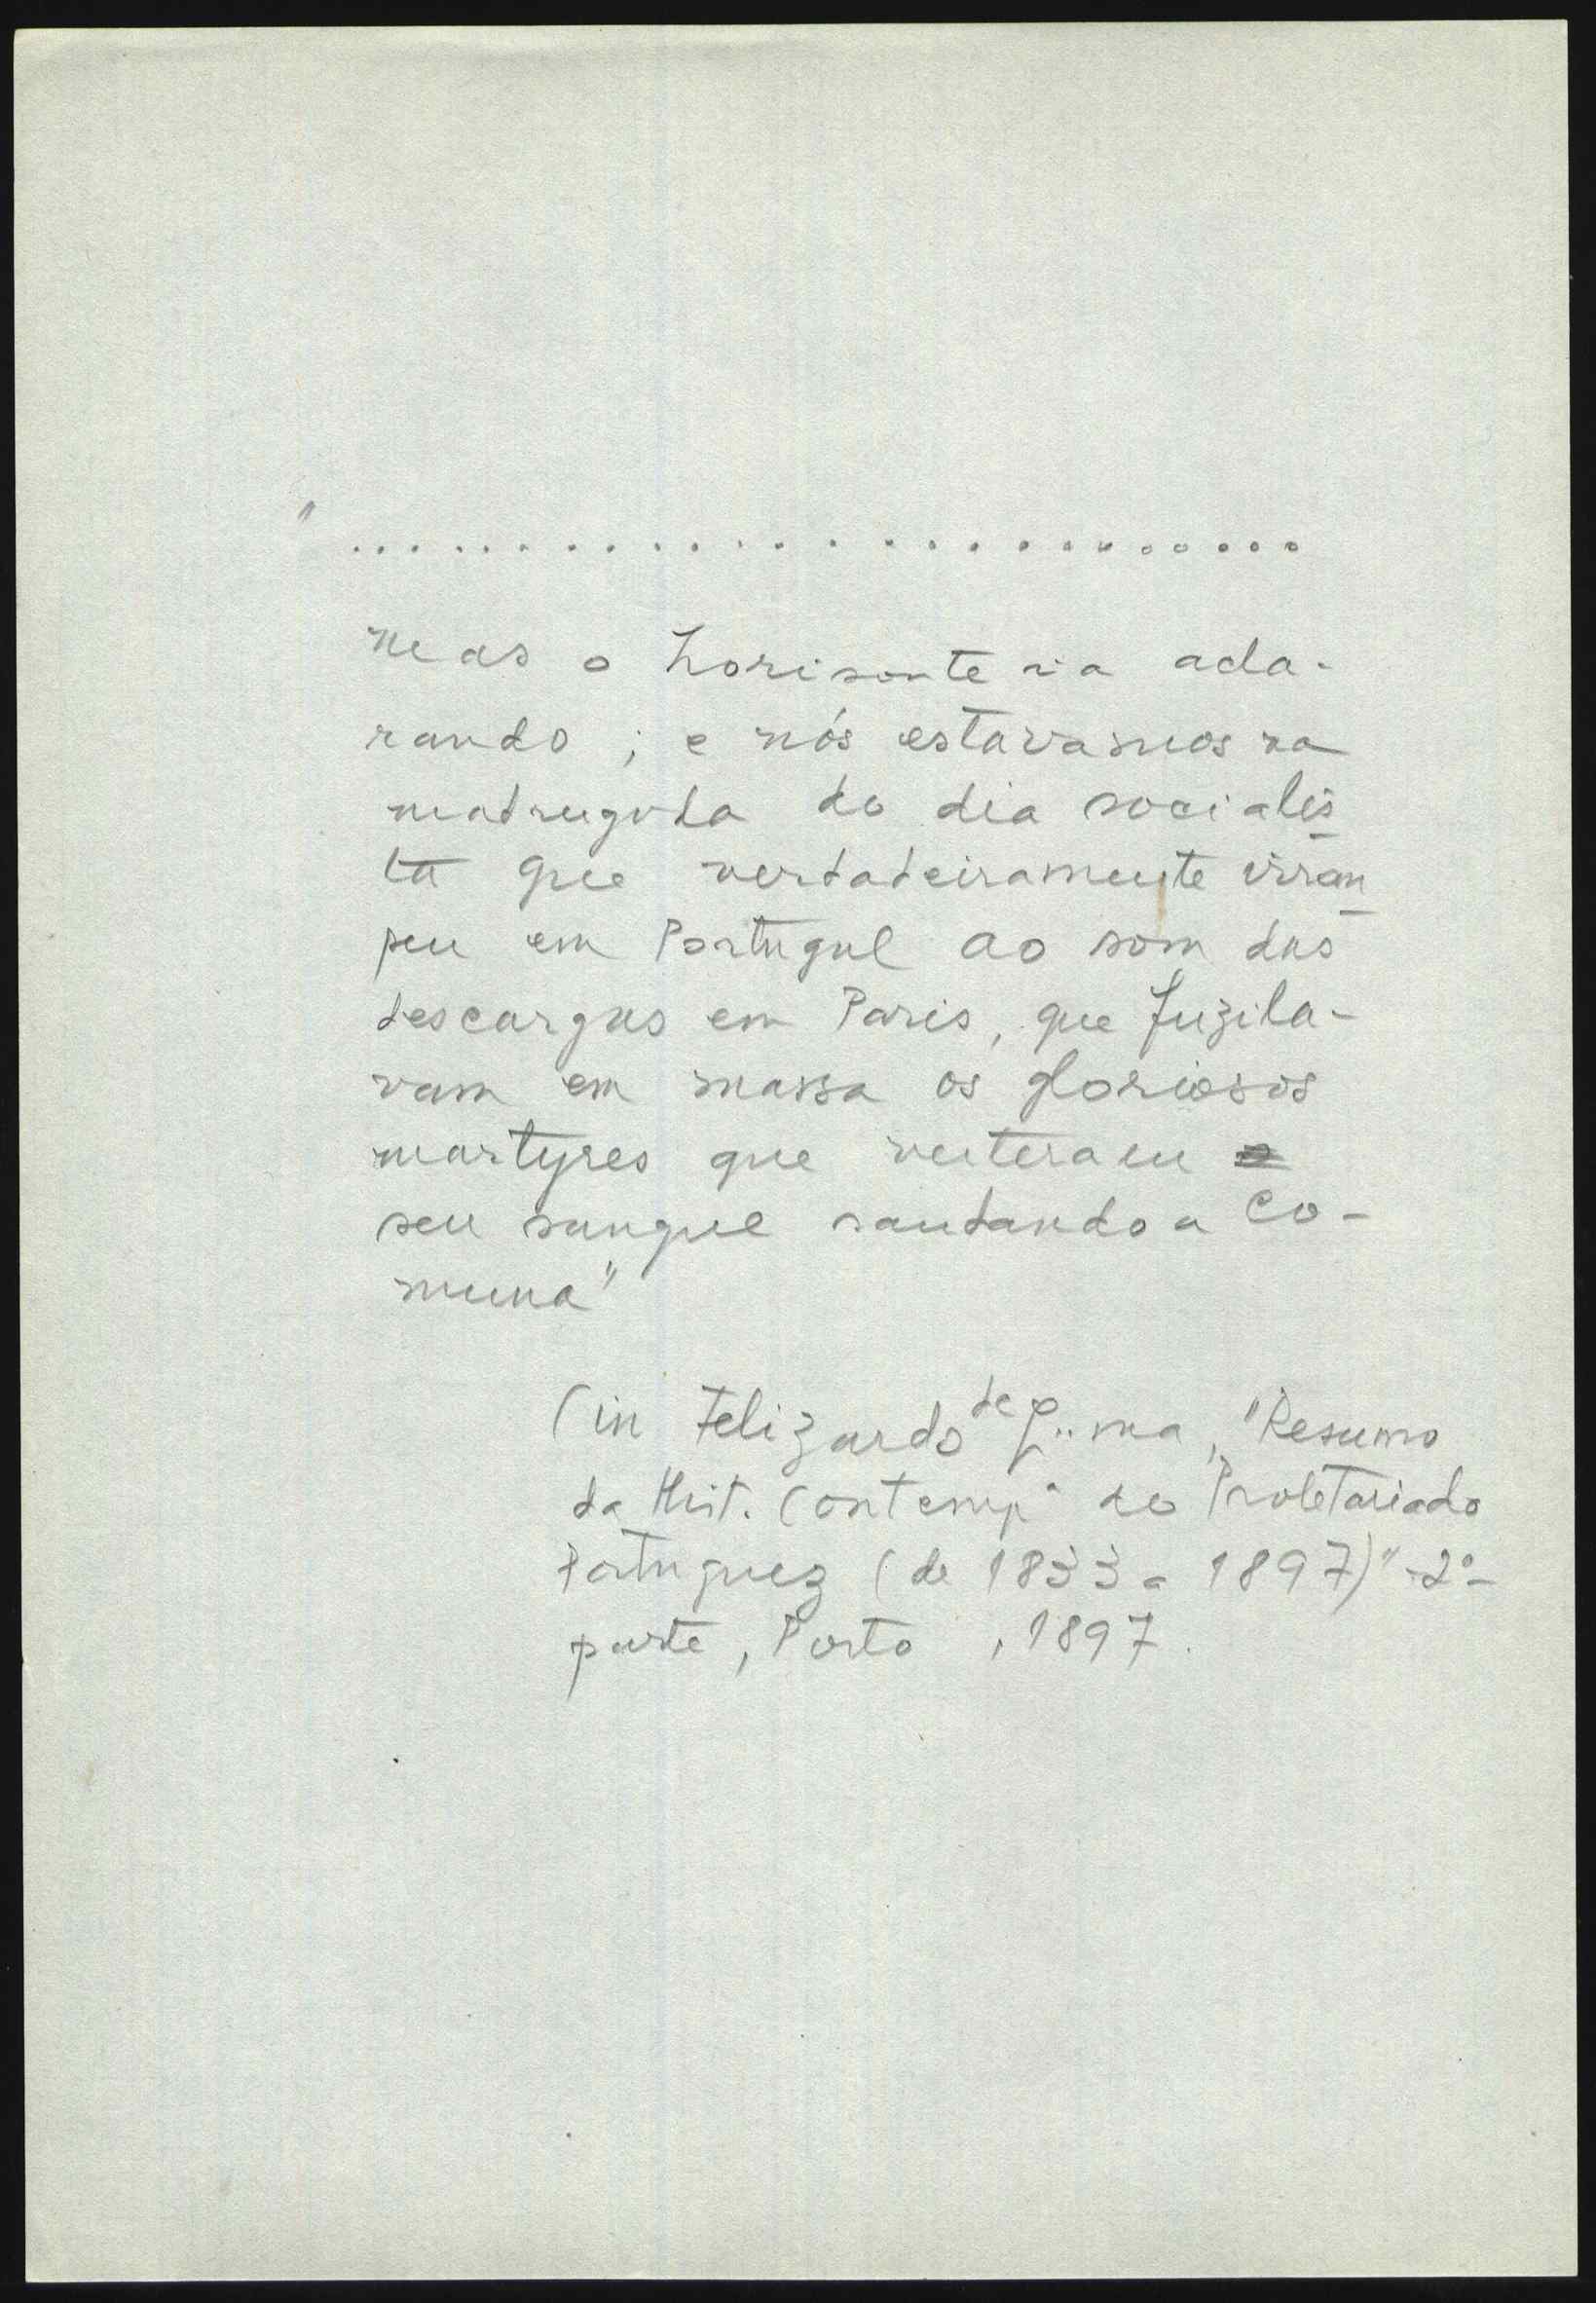 " . . . . . . . . . . . . . . . . . . . . . . . . . .
mas o horisonte ia acla-
rando ; e nós estavamos na
madrugada do dia socialis
ta que verdadeiramente irrom
peu em Portugal ao som das
descargas em Paris, que fuzila-
vam em massa os gloriosos
martyres que verteram o
seu sangue saudando a Co-
muna"
(in Felizardo de Lima, "Resumo
da Hist. Contempª do Proletariado
Portuguez (de 1833 a 1897)" - 2ª
parte, Porto, 1897.